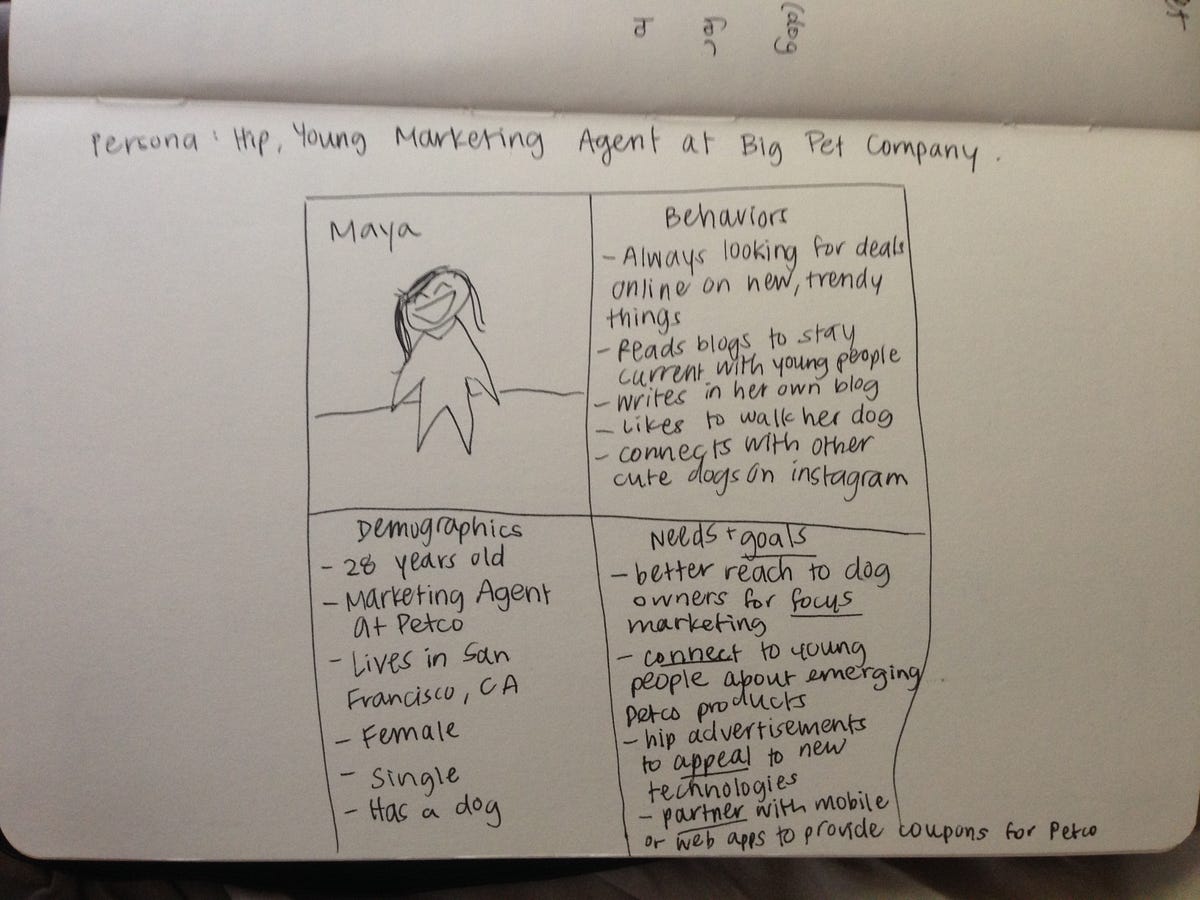 to
for
(dog
Persona: Hip, Young Marketing Agent at Big Pet Company.
Maya
Behaviors
- Always looking for deals
online on new, trendy
things
- Reads blogs to stay
current with young people
- writes in her own blog
- Likes to walk her dog
- connects with other
cute dogs on instagram
Demographics
- 28 years old
- Marketing Agent
at Petco
- Lives in San
Francisco, CA
- Female
- Single
- Has a dog
Needs + goals
- better reach to dog
owners for focus
marketing
- connect to young
people about emerging
petco products
- hip advertisements
to appeal to new
technologies
- partner with mobile
or web apps to provide coupons for Petco